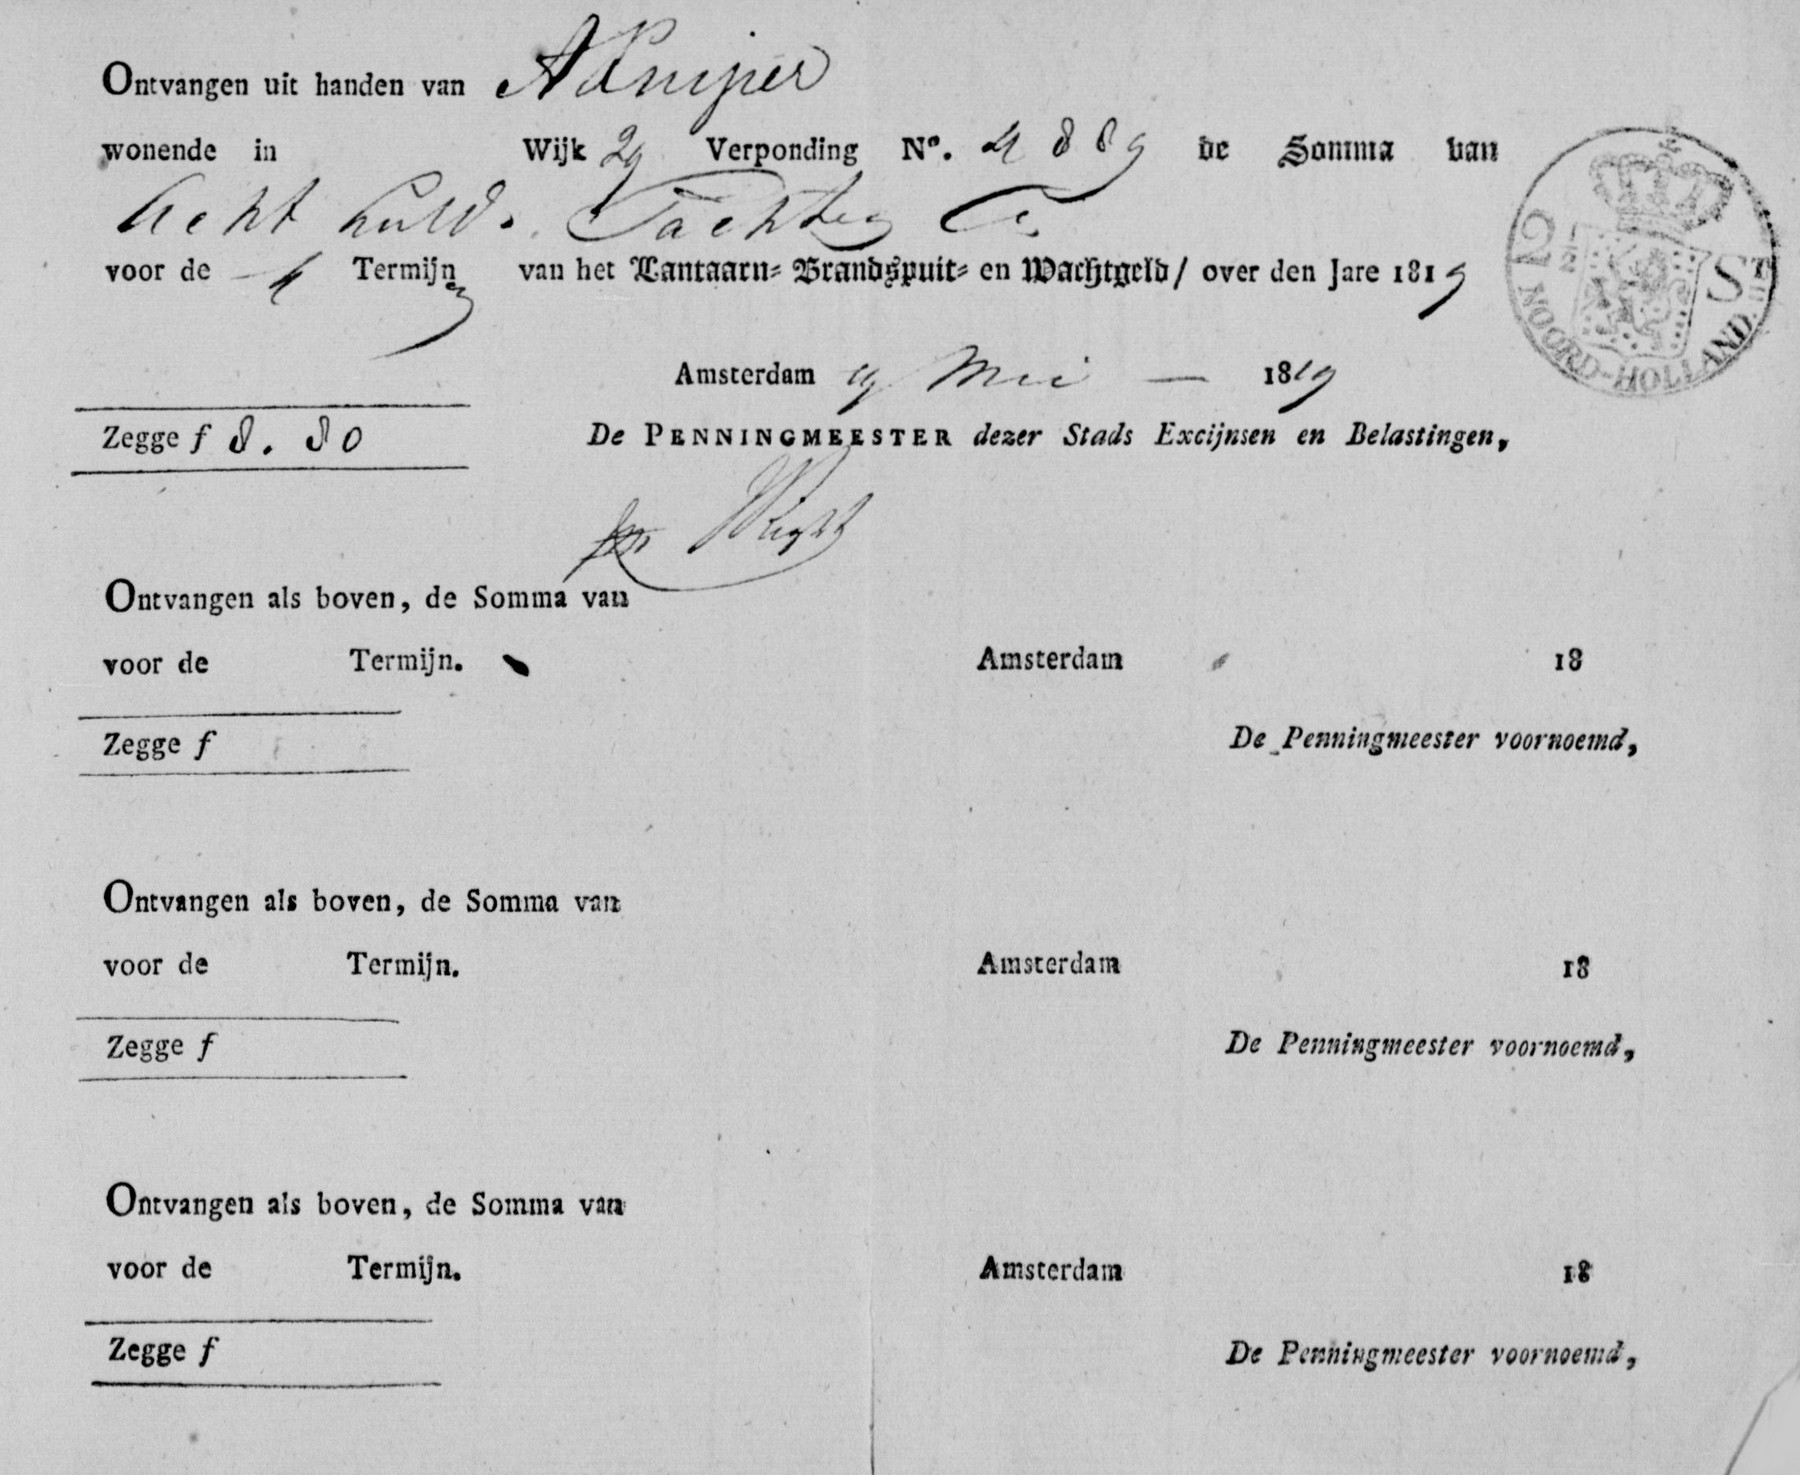 Ontvangen uit handen van A Kuijper
wonende in Wijk 29 Verponding No. 4889 de Somma van
Acht Guld. Tachtig C
voor de 4 Termijnen van het Lantaarn- Brandspuit- en Wachtgeld / over den Jare 1819
2½ ST
NOORD-HOLLAND.
Amsterdam 19 Mei — 1819
Zegge f 8. 80
De PENNINGMEESTER dezer Stads Excijnsen en Belastingen,
Ontvangen als boven, de Somma van
voor de Termijn. Amsterdam 18
Zegge f
De Penningmeester voornoemd,
Ontvangen als boven, de Somma van
voor de Termijn. Amsterdam 18
Zegge f
De Penningmeester voornoemd,
Ontvangen als boven, de Somma van
voor de Termijn. Amsterdam 18
Zegge f
De Penningmeester voornoemd,